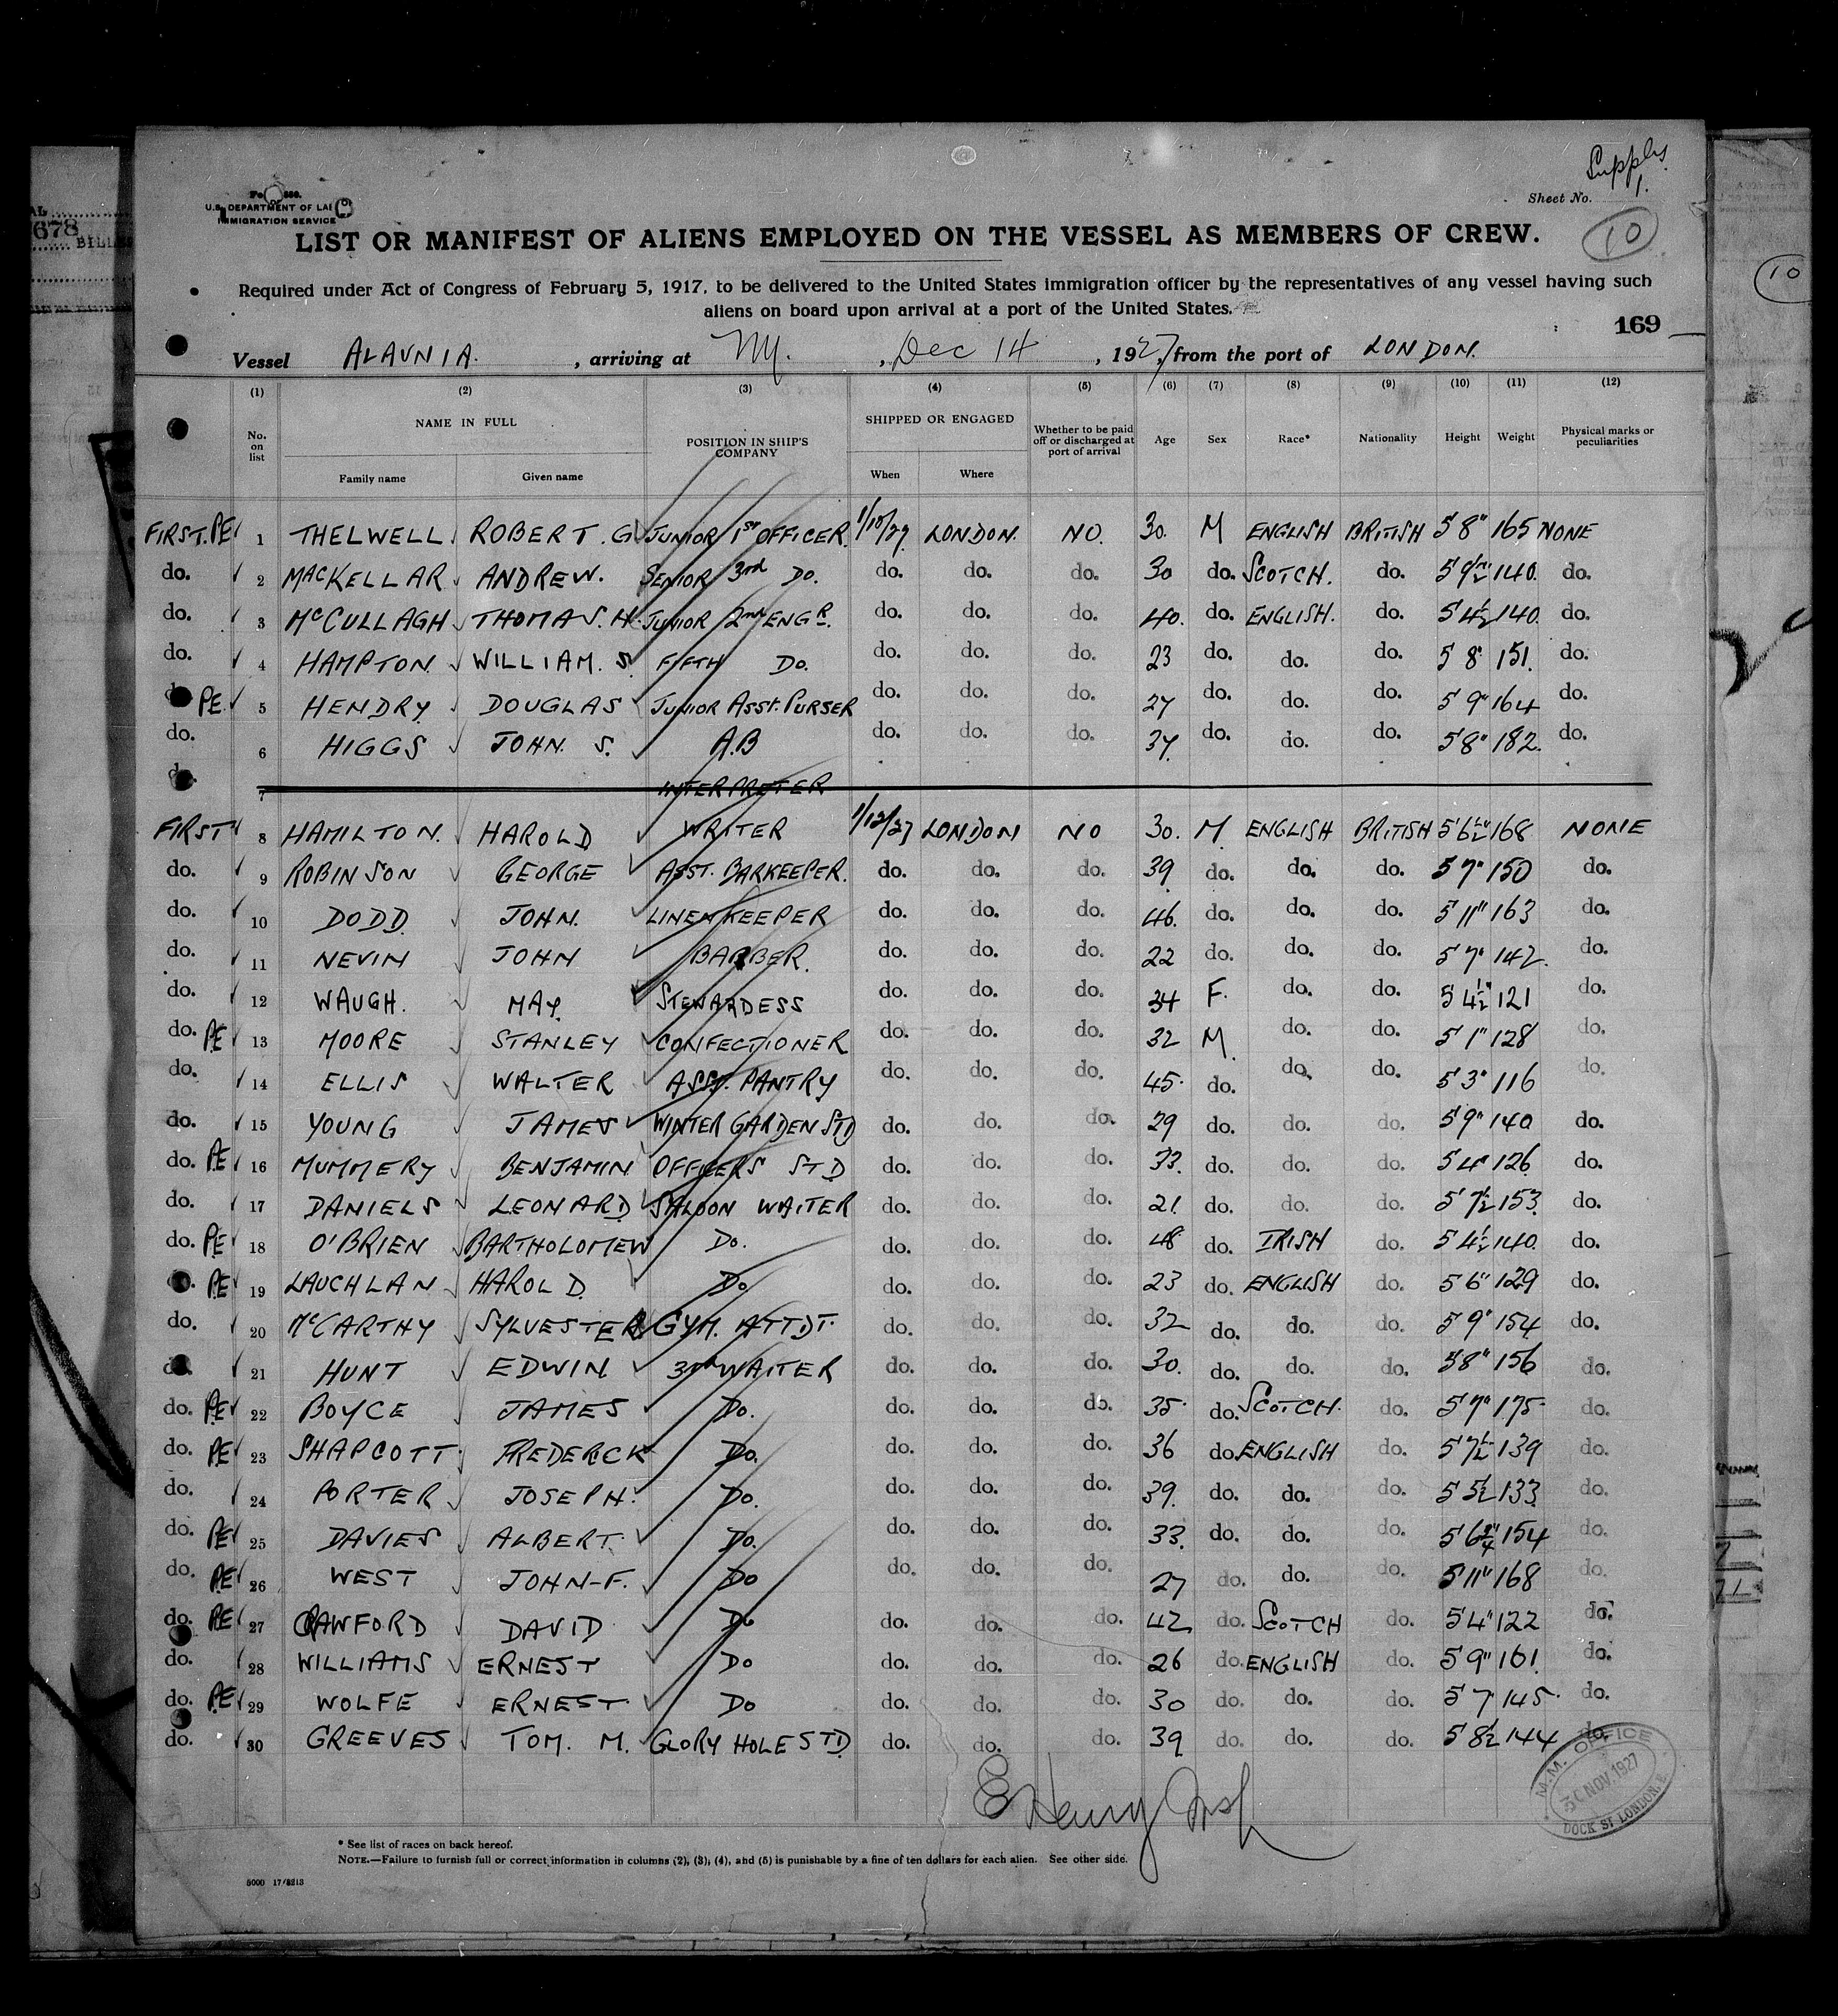 Supply
1.
U.S. DEPARTMENT OF
IMMIGRATION SERVICE
Sheet No.
10
LIST OR MANIFEST OF ALIENS EMPLOYED ON THE VESSEL AS MEMBERS OF CREW.
Required under Act of Congress of February 5, 1917, to be delivered to the United States immigration officer by the representatives of any vessel having such
aliens on board upon arrival at a port of the United States.
169
Vessel ALAUNIA. , arriving at NY. , Dec 14 , 1927, from the port of LONDON.
(1) (2) (3) (4) (5) (6) (7) (8) (9) (10) (11) (12)
No. on list NAME IN FULL Family name Given name POSITION IN SHIP'S COMPANY SHIPPED OR ENGAGED When Where Whether to be paid off or discharged at port of arrival Age Sex Race* Nationality Height Weight Physical marks or peculiarities
FIRST. PE 1 THELWELL. ROBERT. G JUNIOR 1ST OFFICER. LONDON. NO. 30. M ENGLISH BRITISH 5'8" 165 NONE
do. 2 MACKELLAR ANDREW. SENIOR 3rd Do. do. do. do. 30 do. SCOTCH. do. 5 9½" 140. do.
do. 3 McCULLAGH THOMAS. H. JUNIOR 2nd ENGR. do. do. do. 40. do. ENGLISH. do. 5 4½ 140. do.
do. 4 HAMPTON. WILLIAM. S. FIFTH Do. do. do. do. 23 do. do. do. 5 8" 151. do.
do. PE. 5 HENDRY DOUGLAS JUNIOR ASST. PURSER do. do. do. 27 do. do. do. 5 9" 164 do.
do. 6 HIGGS JOHN. S. A.B do. do. do. 37. do. do. do. 5'8" 182. do.
do. 7 INTERPRETER
FIRST 8 HAMILTON. HAROLD WRITER 1/12/27 LONDON NO 30. M. ENGLISH BRITISH 5'6½" 168 NONE
do. 9 ROBINSON GEORGE ASST. BARKEEPER. do. do. do. 39. do. do. do. 5 7" 150 do.
do. 10 DODD. JOHN. LINENKEEPER do. do. do. 46. do. do. do. 5 11" 163 do.
do. 11 NEVIN JOHN BARBER. do. do. do. 22 do. do. do. 5 7" 142. do.
do. 12 WAUGH. MAY. STEWARDESS do. do. do. 34 F. do. do. 5 4½" 121 do.
do. PE 13 MOORE STANLEY CONFECTIONER do. do. do. 32 M. do. do. 5'1" 128 do.
do. 14 ELLIS WALTER ASST. PANTRY do. do. do. 45. do. do. do. 5'3" 116 do.
do. 15 YOUNG JAMES WINTER GARDEN STD do. do. do. 29 do. do. do. 5'9" 140 do.
do. PE 16 MUMMERY BENJAMIN OFFICERS STD do. do. do. 33. do. do. do. 5'4" 126 do.
do. 17 DANIELS LEONARD SALOON WAITER do. do. do. 21. do. do. do. 5'7½ 153. do.
do. PE 18 O'BRIEN BARTHOLOMEW Do. do. do. do. 48 do. IRISH do. 5 4½ 140. do.
do. PE 19 LAUCHLAN HAROLD. Do. do. do. do. 23 do. ENGLISH do. 5 6" 129 do.
do. 20 McCARTHY SYLVESTER GYM. ATTDT. do. do. do. 32 do. do. do. 5'9" 154 do.
do. 21 HUNT EDWIN 3rd WAITER do. do. do. 30. do. do. do. 5'8" 156 do.
do. PE 22 BOYCE JAMES Do. do. do. do. 35. do. SCOTCH. do. 5'7" 175 do.
do. PE 23 SHAPCOTT FREDERCK Do. do. do. do. 36 do. ENGLISH do. 5'7½ 139 do.
do. 24 PORTER JOSEPH. Do. do. do. do. 39. do. do. do. 5 5½ 133. do.
do. PE 25 DAVIES ALBERT. Do. do. do. do. 33. do. do. do. 5'6¾" 154 do.
do. PE 26 WEST JOHN-F. Do do. do. do. 27 do. do. do. 5'11" 168 do.
do. PE 27 CRAWFORD DAVID Do do. do. do. 42 do. SCOTCH do. 5'4" 122 do.
do. 28 WILLIAMS ERNEST Do do. do. do. 26 do. ENGLISH do. 5 9" 161. do.
do. PE 29 WOLFE ERNEST. Do do. do. do. 30 do. do. do. 5 7" 145. do.
do. 30 GREEVES TOM. M. GLORY HOLE STD. do. do. do. 39 do. do. do. 5'8½ 144 do.
E Henry
M.M. OFFICE
30 NOV. 1927
DOCK ST LONDON. E.
* See list of races on back hereof.
NOTE.—Failure to furnish full or correct information in columns (2), (3), (4), and (5) is punishable by a fine of ten dollars for each alien. See other side.
5000 17/8213
678
BILL
10